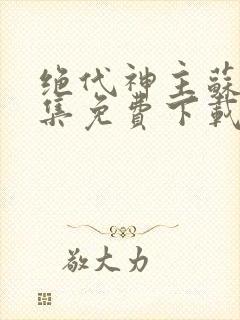 绝代神主蘇
集免費下載
敬大力